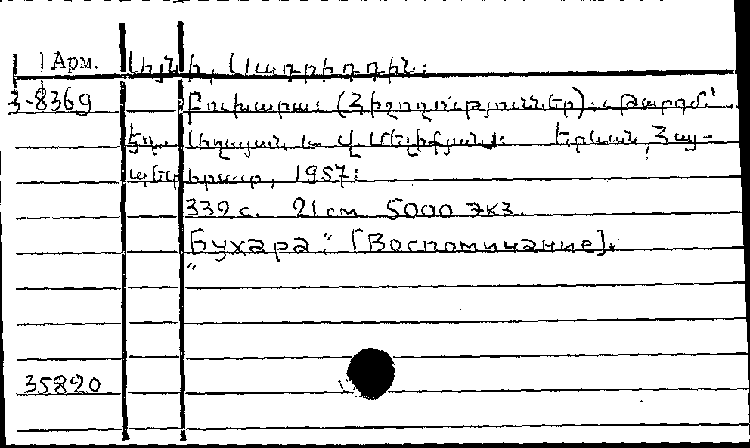 Арм. Այնի, Սադրիդդին:
3-8369 Բուխարա (Հիշողություններ): Թարգմ՝
Էդ. Աղայան և Վ. Մելիքյան: Երևան, Հայ-
պետհրատ, 1957:
332 с. 21 см 5000 экз.
„Бухара“ [Воспоминание].
35820